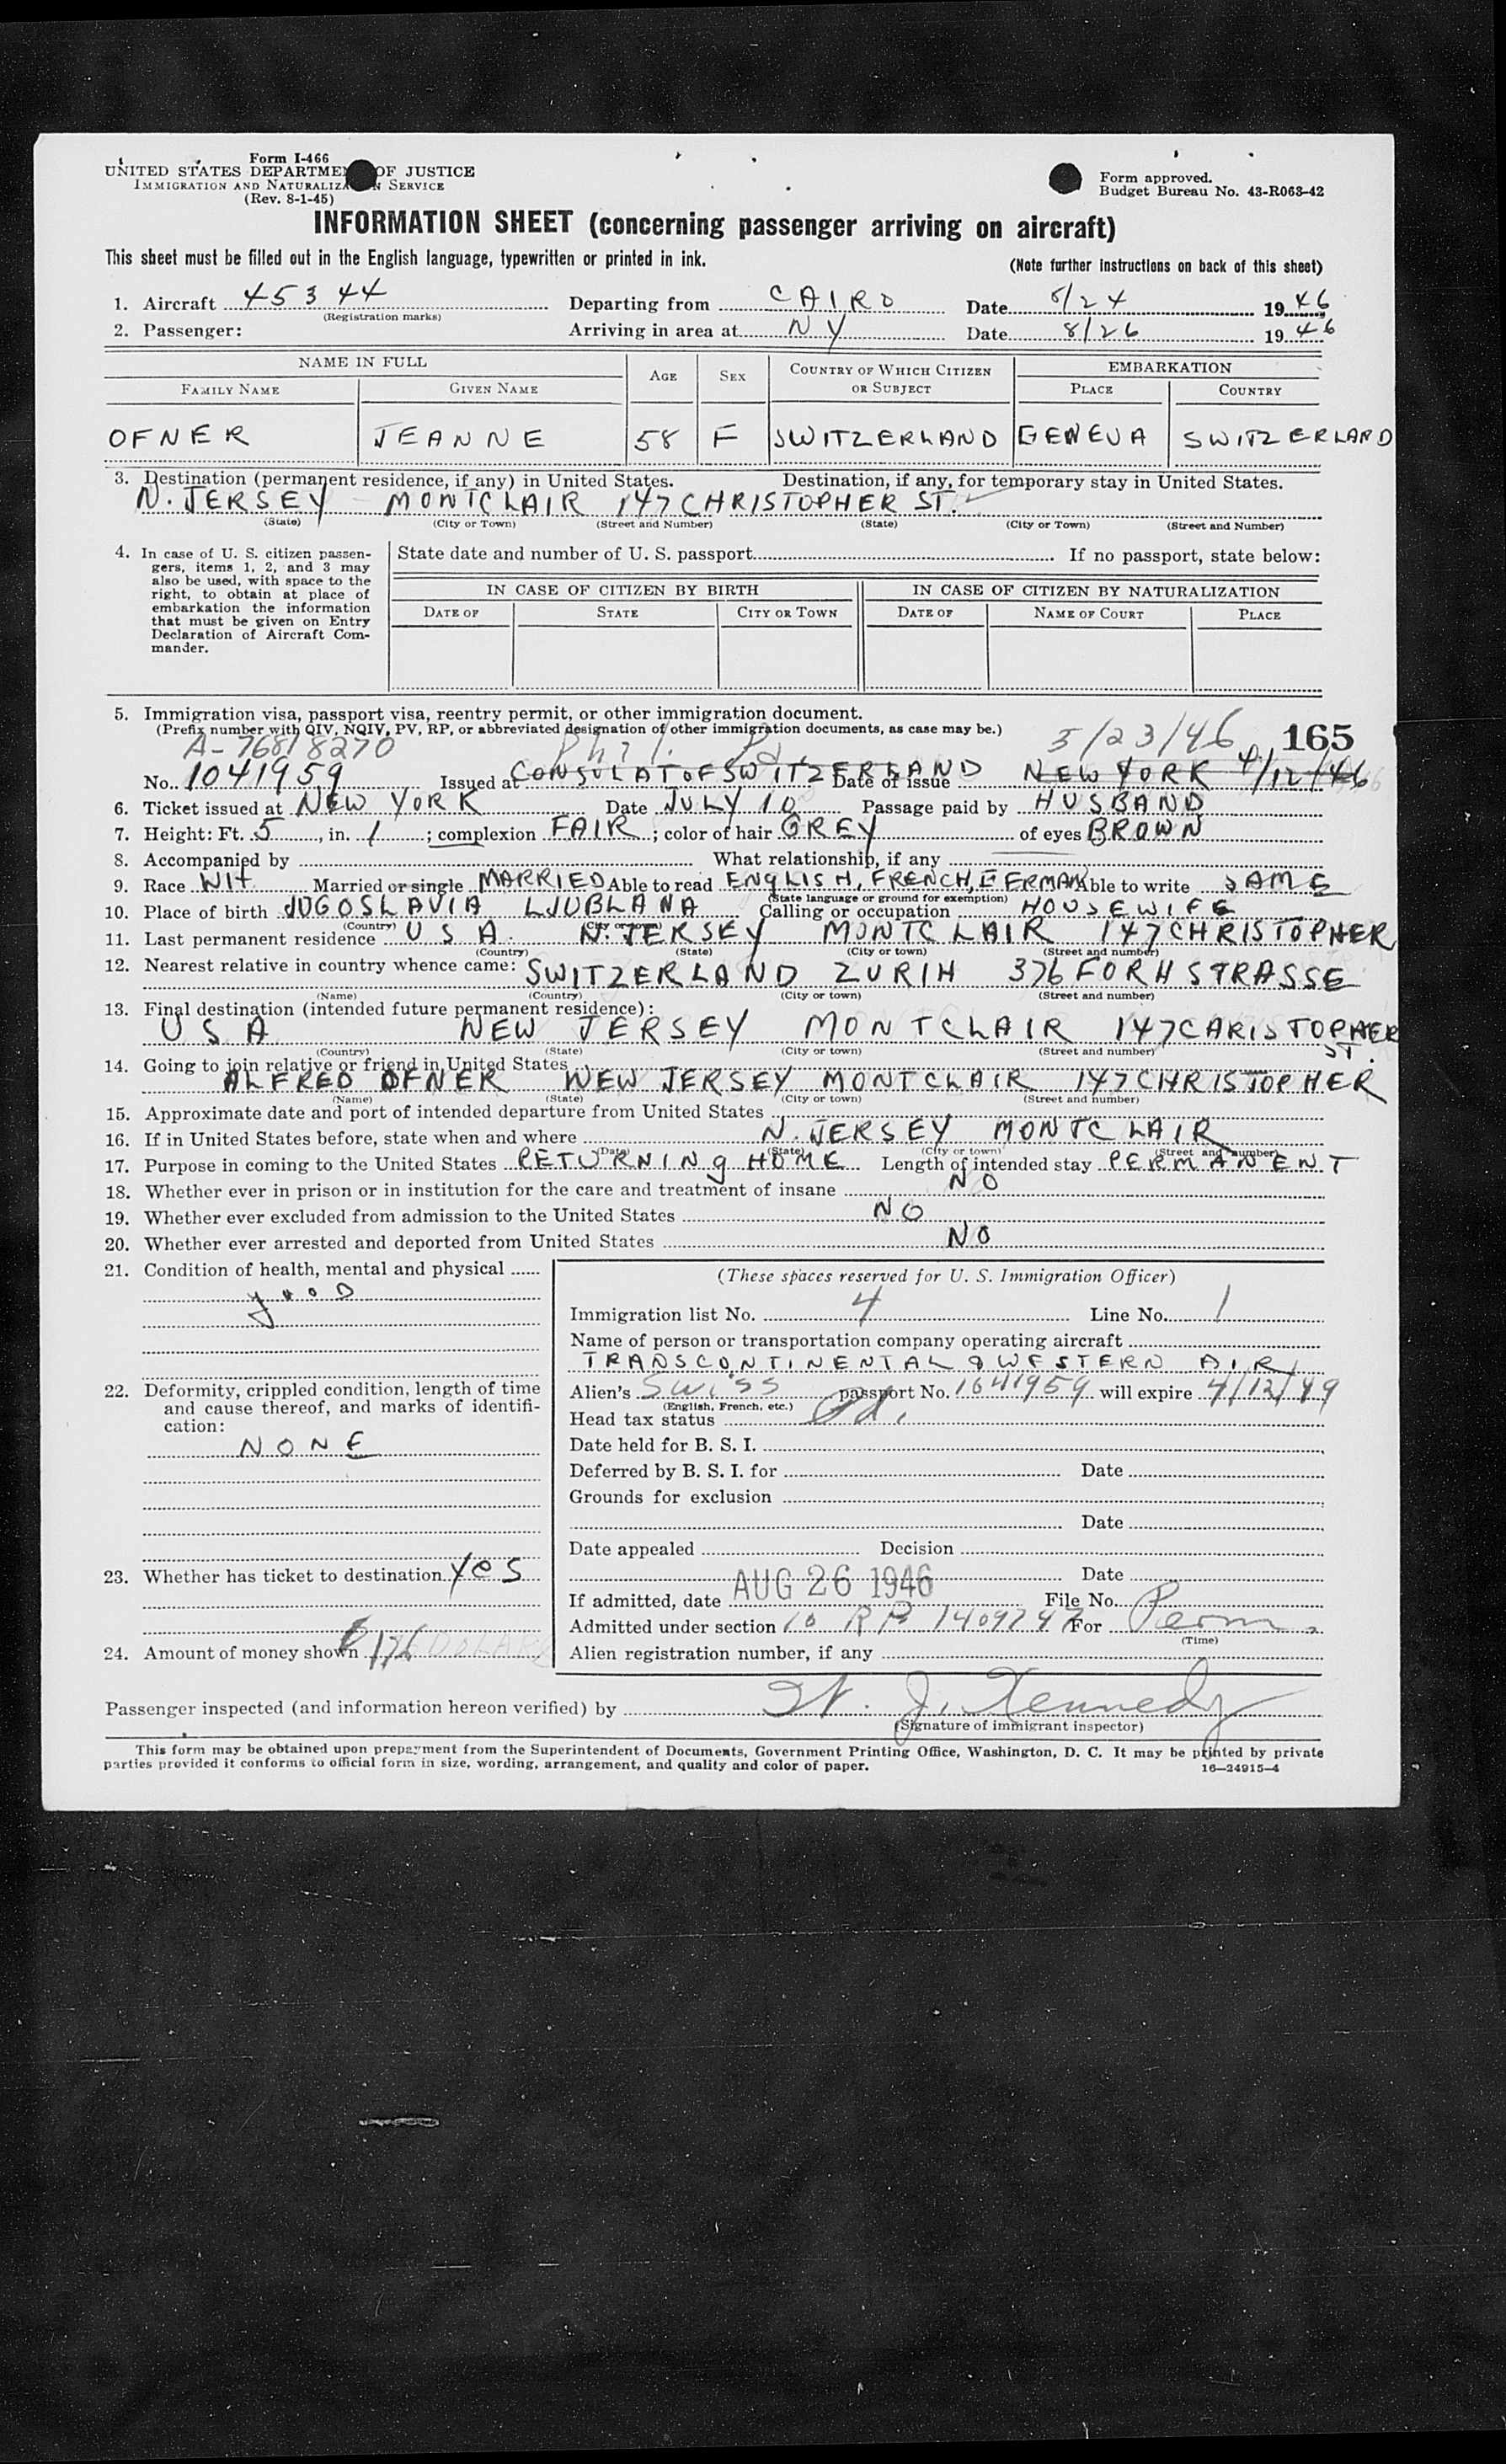 Form I-466
UNITED STATES DEPARTMENT OF JUSTICE
IMMIGRATION AND NATURALIZATION SERVICE
(Rev. 8-1-45)
Form approved.
Budget Bureau No. 43-R063-42
INFORMATION SHEET (concerning passenger arriving on aircraft)
This sheet must be filled out in the English language, typewritten or printed in ink.
(Note further instructions on back of this sheet)
1. Aircraft 45344 Departing from CAIRO Date 8/24 1946
(Registration marks)
2. Passenger: Arriving in area at NY Date 8/26 1946
NAME IN FULL AGE SEX COUNTRY OF WHICH CITIZEN OR SUBJECT EMBARKATION
FAMILY NAME GIVEN NAME PLACE COUNTRY
OFNER JEANNE 58 F SWITZERLAND GENEVA SWITZERLAND
3. Destination (permanent residence, if any) in United States. Destination, if any, for temporary stay in United States.
N. JERSEY MONTCLAIR 147 CHRISTOPHER ST.
(State) (City or Town) (Street and Number) (State) (City or Town) (Street and Number)
4. In case of U. S. citizen passengers, items 1, 2, and 3 may also be used, with space to the right, to obtain at place of embarkation the information that must be given on Entry Declaration of Aircraft Commander.
State date and number of U. S. passport If no passport, state below:
IN CASE OF CITIZEN BY BIRTH IN CASE OF CITIZEN BY NATURALIZATION
DATE OF STATE CITY OR TOWN DATE OF NAME OF COURT PLACE
5. Immigration visa, passport visa, reentry permit, or other immigration document.
(Prefix number with QIV, NQIV, PV, RP, or abbreviated designation of other immigration documents, as case may be.)
A-76818270 Phil. Pa. 5/23/46 165
No. 1041959 Issued at CONSULAT OF SWITZERLAND Date of issue NEW YORK 4/12/46
6. Ticket issued at NEW YORK Date JULY 10 Passage paid by HUSBAND
7. Height: Ft. 5, in. 1; complexion FAIR; color of hair GREY of eyes BROWN
8. Accompanied by What relationship, if any
9. Race WIt Married or single MARRIED Able to read ENGLISH, FRENCH, GERMAN Able to write SAME
(State language or ground for exemption)
10. Place of birth JUGOSLAVIA LJUBLANA Calling or occupation HOUSEWIFE
(Country) (City or town)
11. Last permanent residence U S A. N. JERSEY MONTCLAIR 147 CHRISTOPHER
(Country) (State) (City or town) (Street and number)
12. Nearest relative in country whence came: SWITZERLAND ZURIH 376 FORHSTRASSE
(Name) (Country) (City or town) (Street and number)
13. Final destination (intended future permanent residence):
U. S. A. NEW JERSEY MONTCLAIR 147 CHRISTOPHER ST.
(Country) (State) (City or town) (Street and number)
14. Going to join relative or friend in United States
ALFRED OFNER NEW JERSEY MONTCLAIR 147 CHRISTOPHER
(Name) (State) (City or town) (Street and number)
15. Approximate date and port of intended departure from United States
16. If in United States before, state when and where N. JERSEY MONTCLAIR
(Date) (State) (City or town) (Street and number)
17. Purpose in coming to the United States RETURNING HOME Length of intended stay PERMANENT
18. Whether ever in prison or in institution for the care and treatment of insane NO
19. Whether ever excluded from admission to the United States NO
20. Whether ever arrested and deported from United States NO
21. Condition of health, mental and physical
gooD
22. Deformity, crippled condition, length of time and cause thereof, and marks of identification:
NONE
23. Whether has ticket to destination Yes
24. Amount of money shown 176 DOLLARS
(These spaces reserved for U. S. Immigration Officer)
Immigration list No. 4 Line No. 1
Name of person or transportation company operating aircraft
TRANSCONTINENTAL & WESTERN AIR
Alien's Swiss passport No. 1041959 will expire 4/12/49
(English, French, etc.)
Head tax status Pd.
Date held for B. S. I.
Deferred by B. S. I. for Date
Grounds for exclusion
Date
Date appealed Decision
Date
If admitted, date AUG 26 1946 File No.
Admitted under section 10 RP 1409747 For Perm.
(Time)
Alien registration number, if any
Passenger inspected (and information hereon verified) by W. J. Kennedy
(Signature of immigrant inspector)
This form may be obtained upon prepayment from the Superintendent of Documents, Government Printing Office, Washington, D. C. It may be printed by private
parties provided it conforms to official form in size, wording, arrangement, and quality and color of paper.
16—24915-4